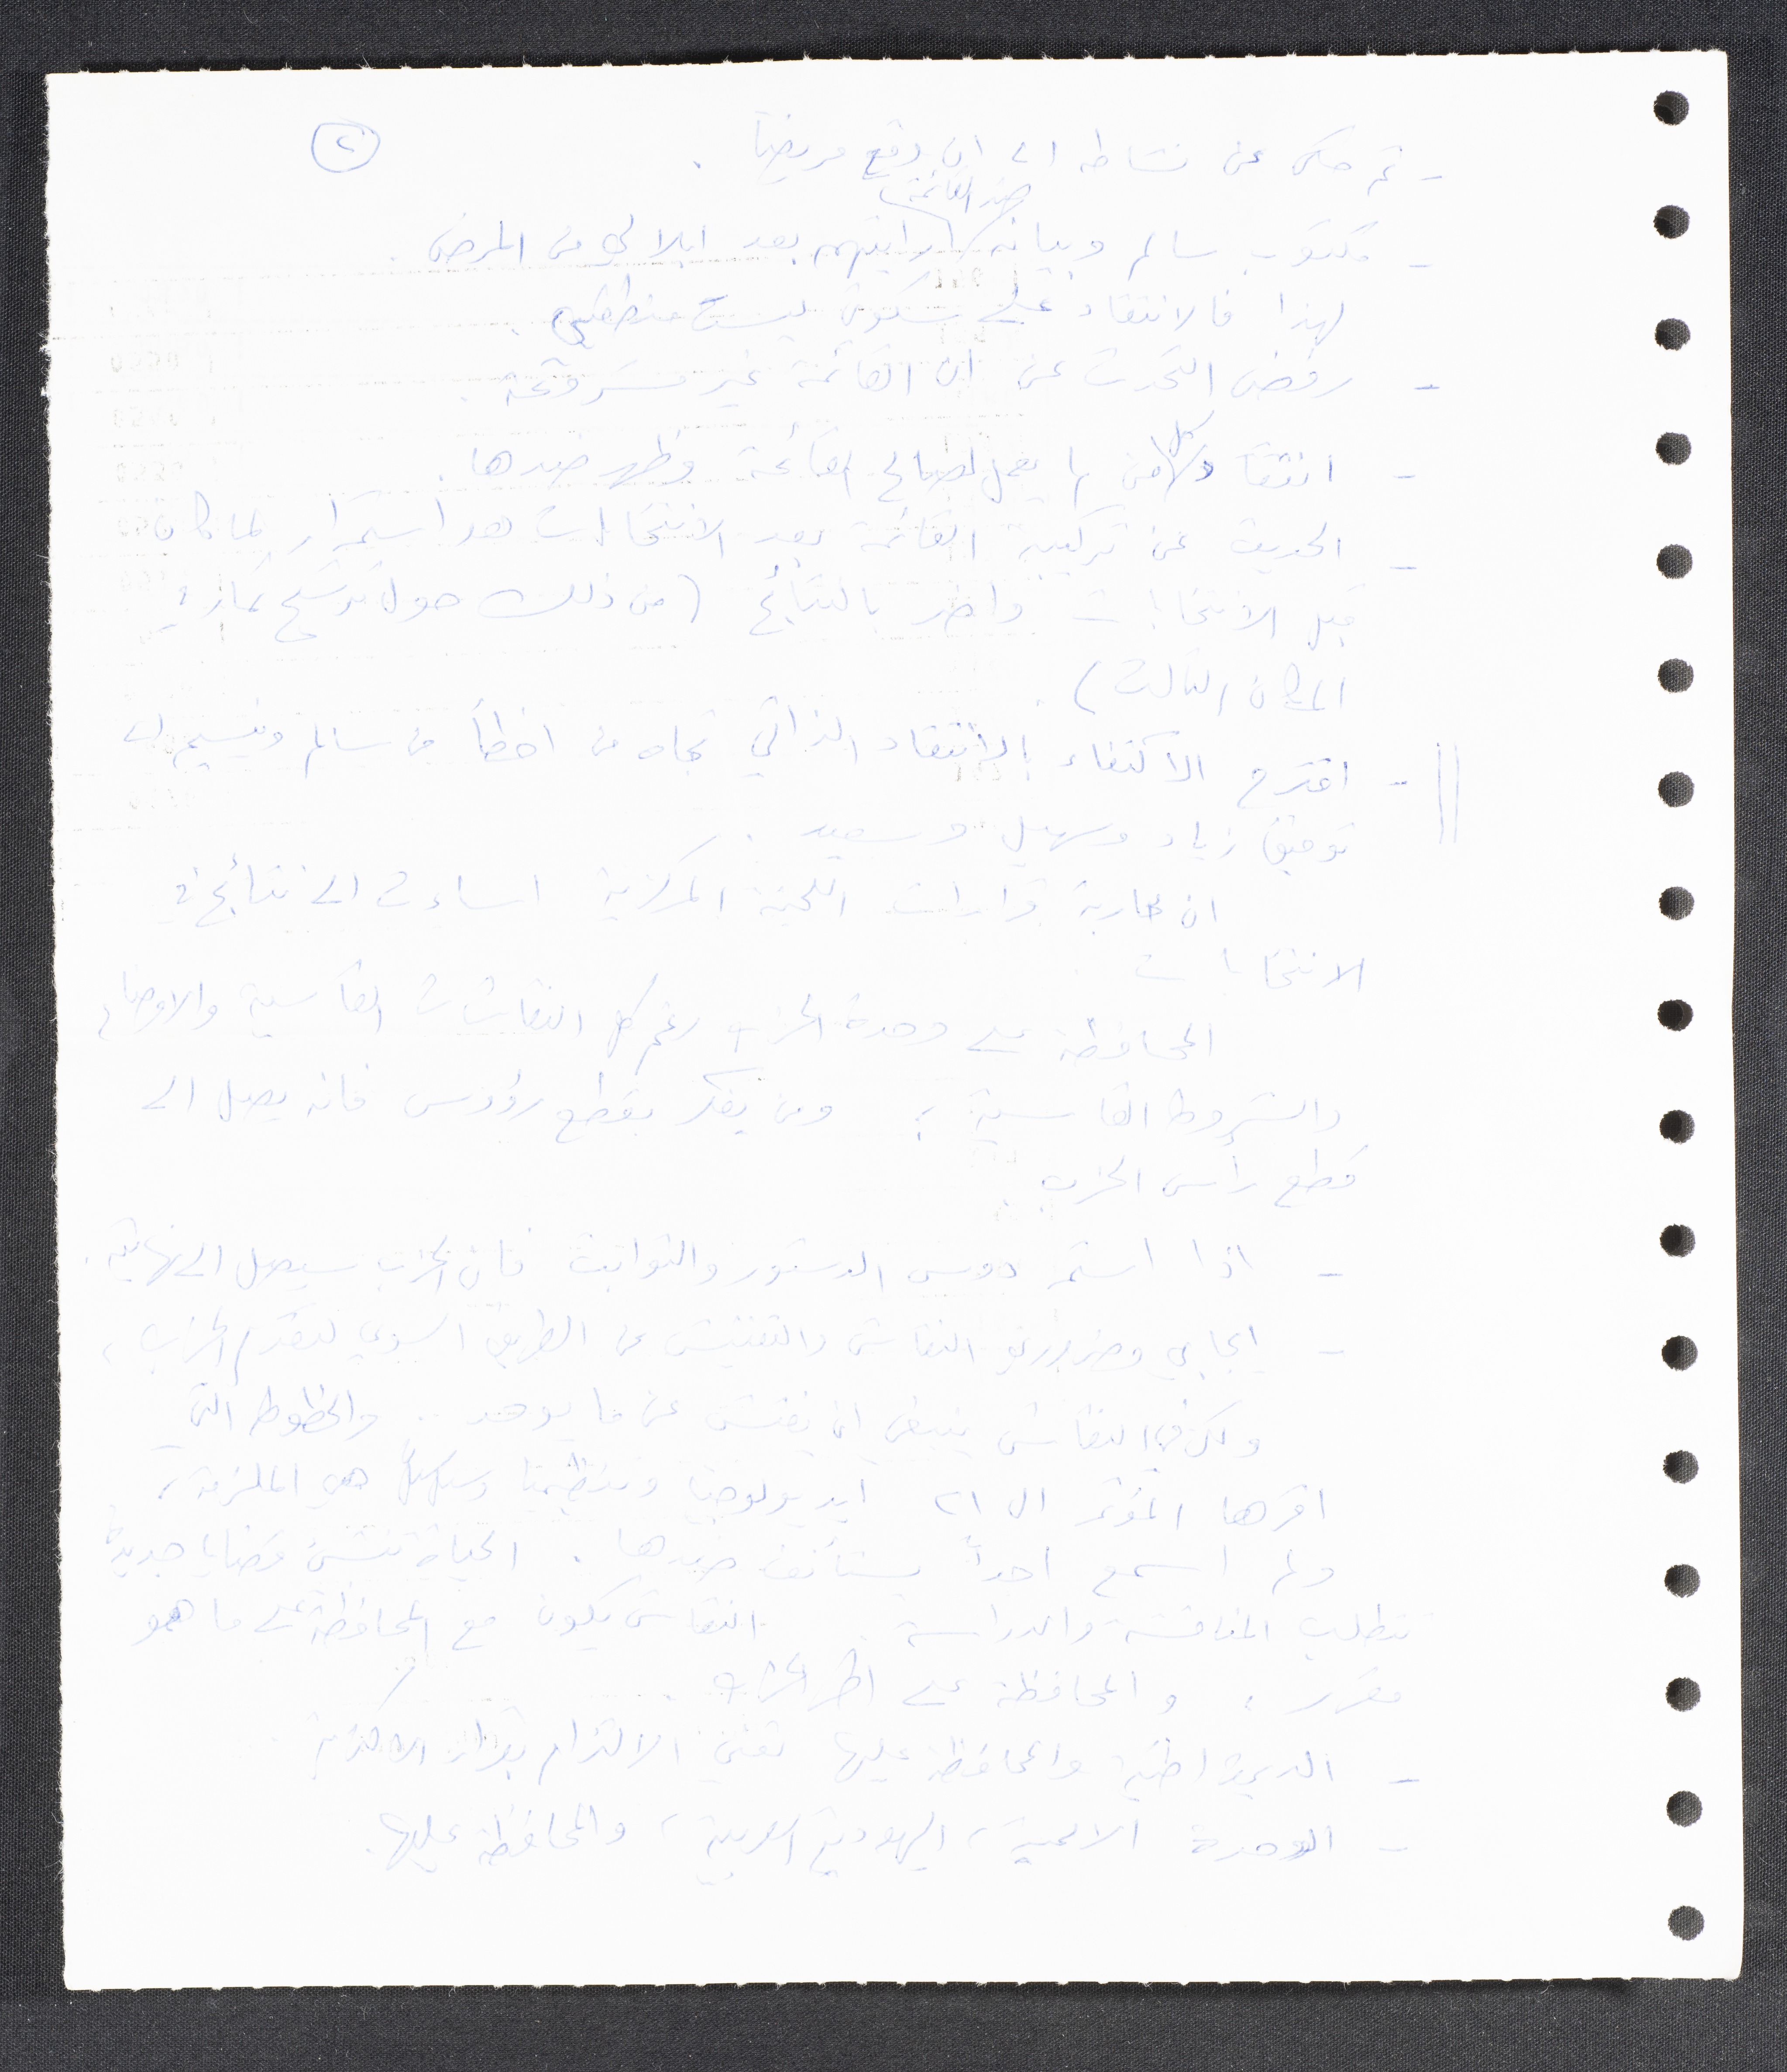 ٢
- ثم حكى عن نشاطه الى ان وقع مريضاً .
ضد القائمة
- مكتوب سالم وبيانه رايتهم بعد ابلالي من المرض .
لهذا فالانتقاد على سكوتي ليست منطقي .
- رفض التحدث عن ان القائمة غير مشرفة .
- انتقاد كل من لم يعمل لصالح القائمة وظهر ضدها .
- الحديث عن تركيبة القائمة بعد الانتخابات هو استمرار لما كان
قبل الانتخابات واضر بالنتائج (من ذلك حول ترشيح تمار في
المكان الثالث)
- اقترح الاكتفاء بالانتقاد الذاتي تجاه من اخطأ من سالم ونسيم
توفيق زياد وسهيل وسعيد .
ان محاربة قرارات اللجنة المركزية اساءت الى نتائج في
الانتخابات
المحافظة على وحدة الحزب رغم كل النقاشات القاسية والاوضاع
والشروط القاسية ؛ ومن يفكر بقطع رؤوس فانه يصل الى
قطع رأس الحزب .
- اذا استمر دوس الدستور والثوابت فان الحزب سيصل الى نهايته .
- ايجابي وضروري النقاش والتفتيش عن الطريق السوي لتقدم الحزب ،
ولكن في النقاش ينبغي ان نفتش عن ما يوحد .. والخطوط التي
اقرها المؤتمر ال ٢١ ايديولوجيا وتنظيميا هي الملزمة ،
ولم اسمع احداً يستأنف ضدها . الحياة تنشئ قضايا جديدة
تتطلب المناقشة والدراسة . النقاش يكون مع المحافظة على ما هو
مقرر ، والمحافظة على اطر الحزب .
- الديمقراطية والمحافظة عليها تعني الالتزام بقرار الاكثرية
- الوحدة الاممية ، اليهودية العربية ، والمحافظة عليها .